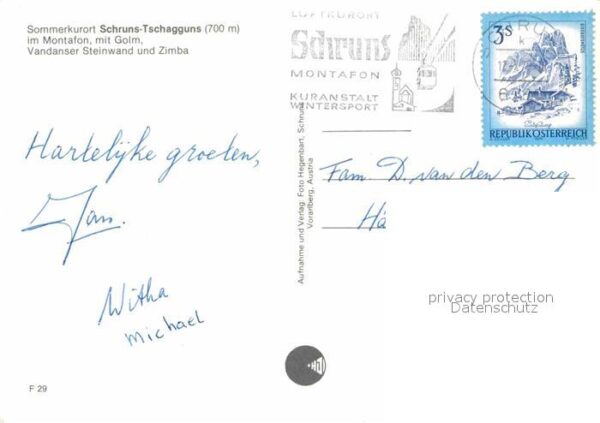 Sommerkurort Schruns-Tschagguns (700 m)
im Montafon, mit Golm,
Vandanser Steinwand und Zimba
LUFTKURORT
Schruns
MONTAFON
KURANSTALT
WINTERSPORT
3S
REPUBLIK ÖSTERREICH
Hartelijke groeten,
Jan.
Witha
Michael
Aufnahme und Verlag: Foto Hegenbart, Schruns
Vorarlberg, Austria
Fam D. van den Berg
privacy protection
Datenschutz
F 29